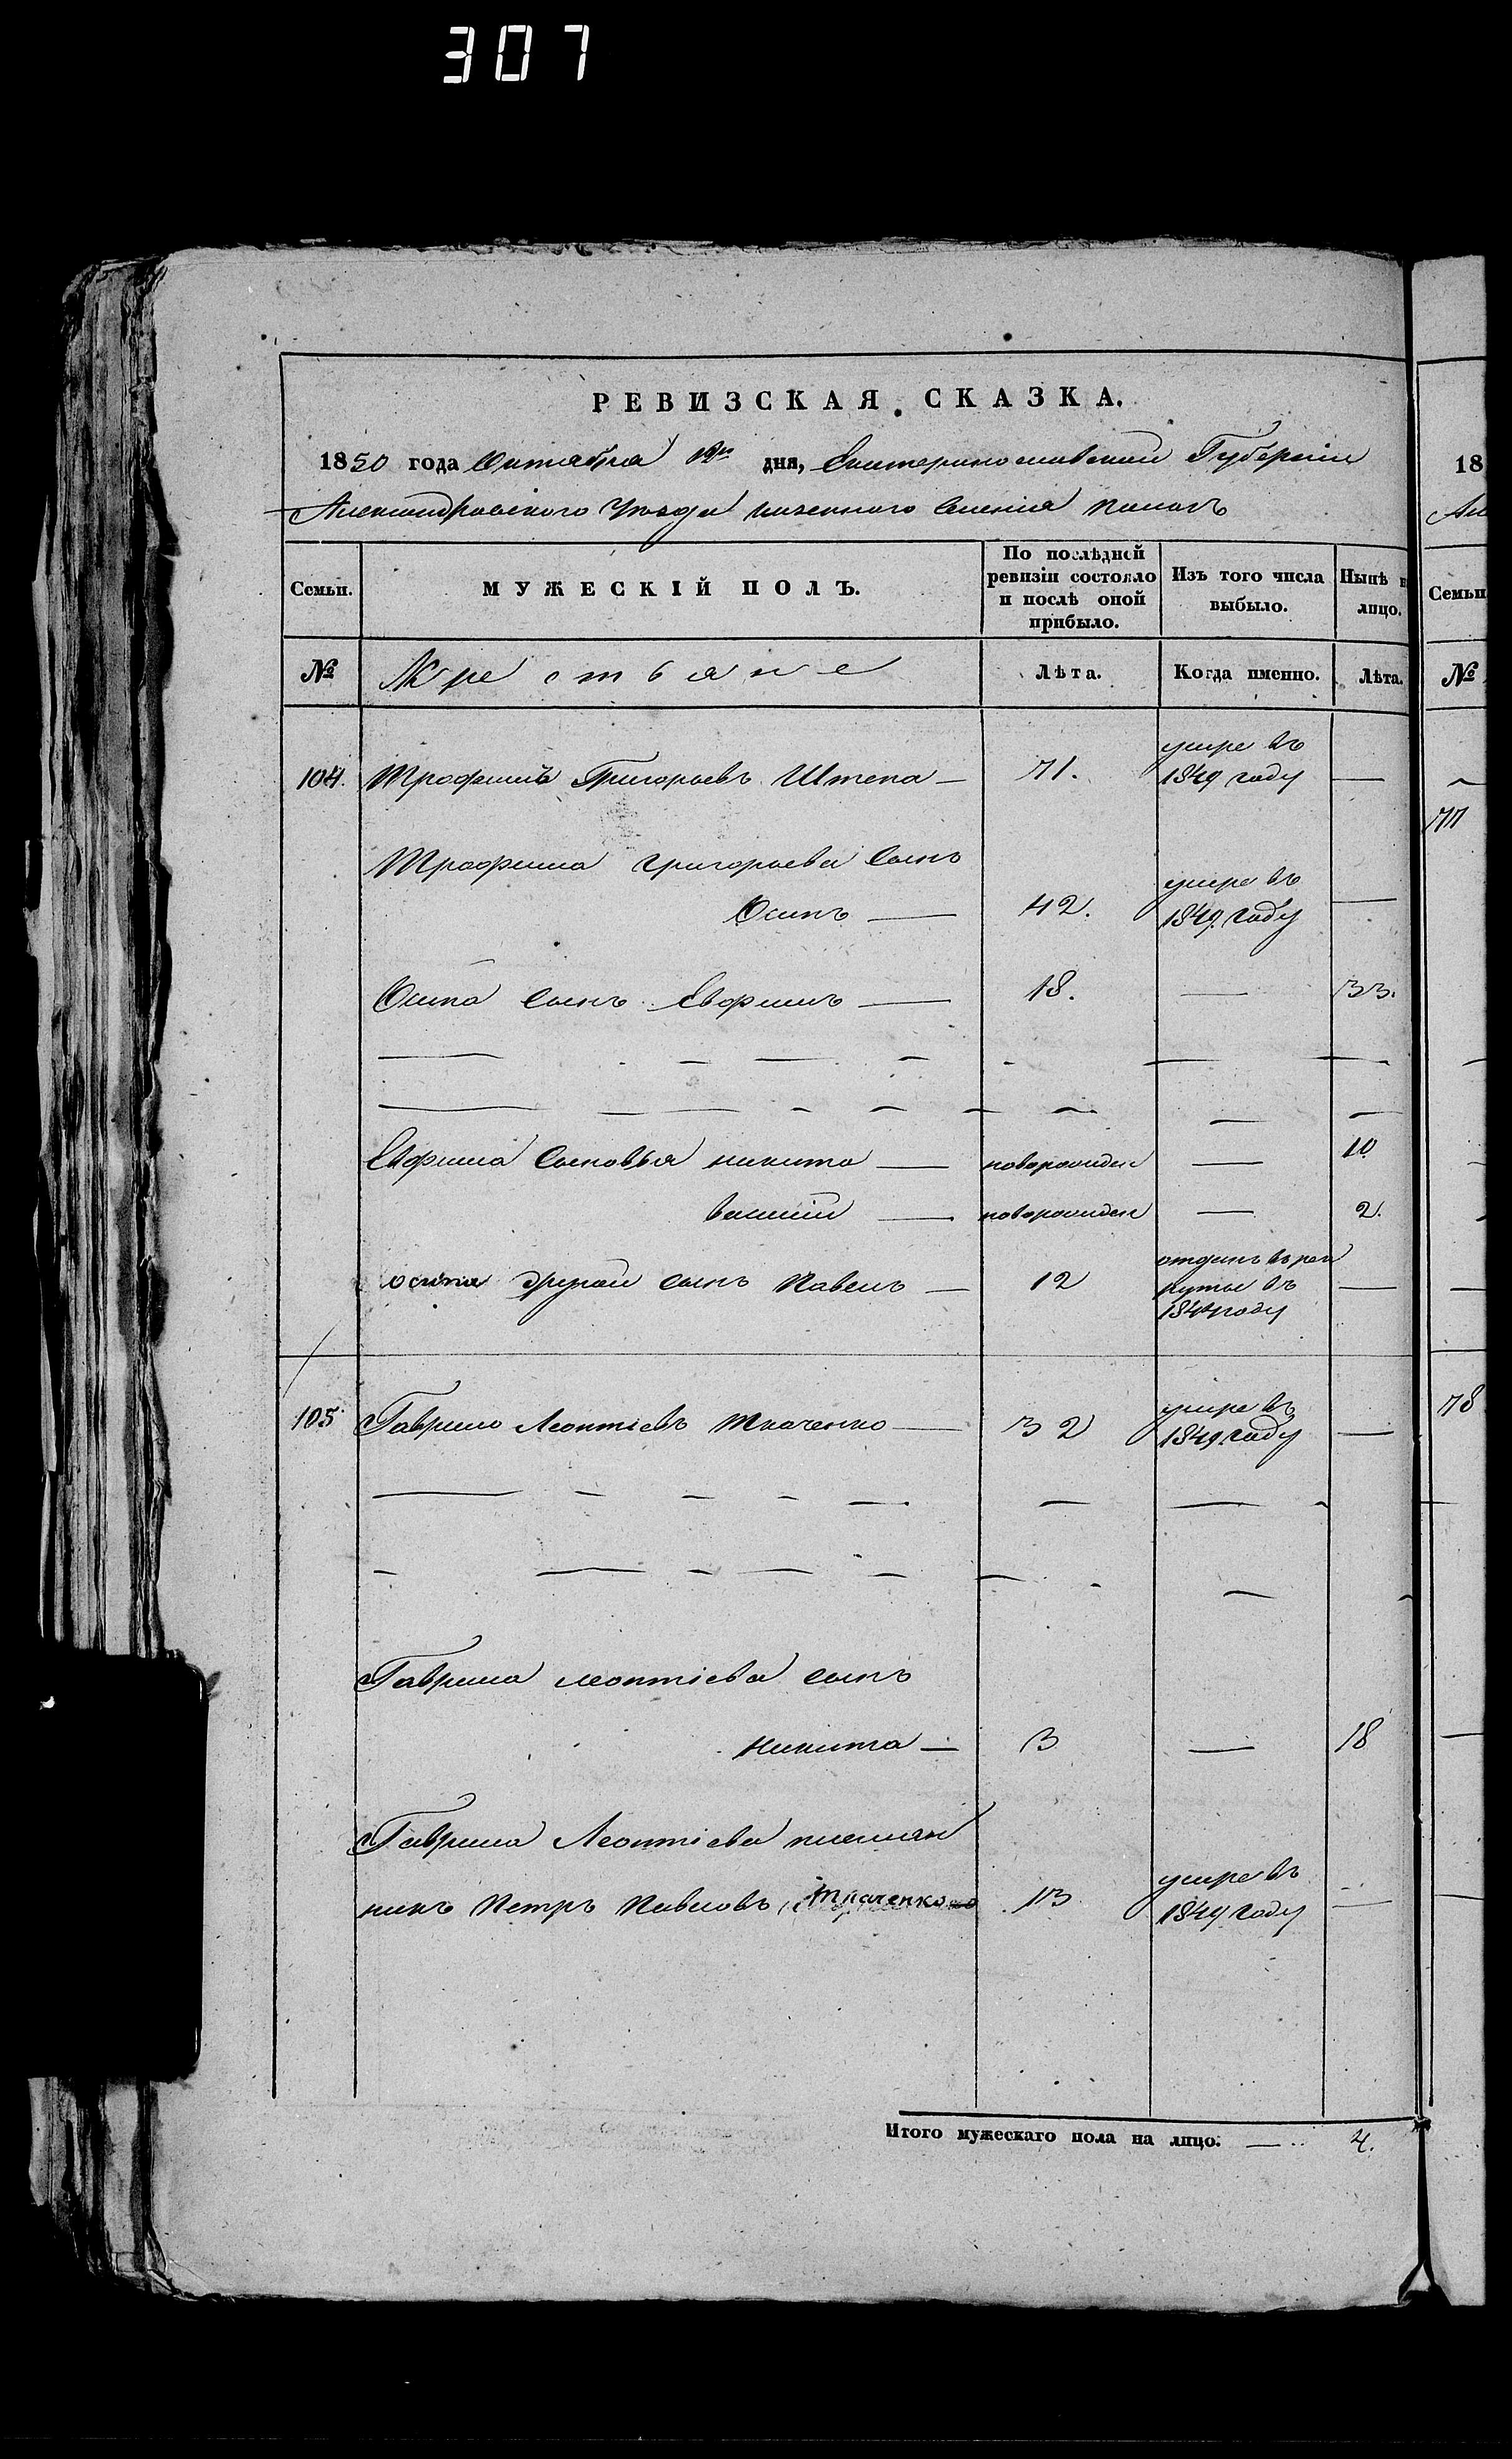 307
РЕВИЗСКАЯ СКАЗКА.
1850 года Октября дня, Екатеринославской Губерніи
Александровского Уезда казенного Селенія Камань
Семьи. МУЖЕСКІЙ ПОЛЪ. По послѣдней ревизіи состояло и послѣ оной прибыло. Изъ того числа выбыло. Нынѣ на лицо.
№ Крестьяне Лѣта. Когда именно. Лѣта.
104. Трофимъ Григорьевъ Штепа — 71. умре въ 1849 году —
Трофима Григорьева Сынъ
Осипъ — 42. умре въ 1849. году —
Осипа Сынъ Евфимъ — 18. — 33.
Евфима Сыновья никита — новорожден — 10
василій — новорожден — 2.
осипа другой сынъ Павелъ — 12 отданъ въ рекруты въ 1844 году —
105 Гаврило Леонтіевъ Ткаченко — 32 умре въ 1849. году —
Гаврила леонтіева сынъ
никита — 3 — 18
Гаврила Леонтіева племян
никъ Петръ Павловъ Ткаченко 13 умре въ 1849 году —
Итого мужескаго пола на лицо. — 4.
18
Ал
Семьи
№
77
78